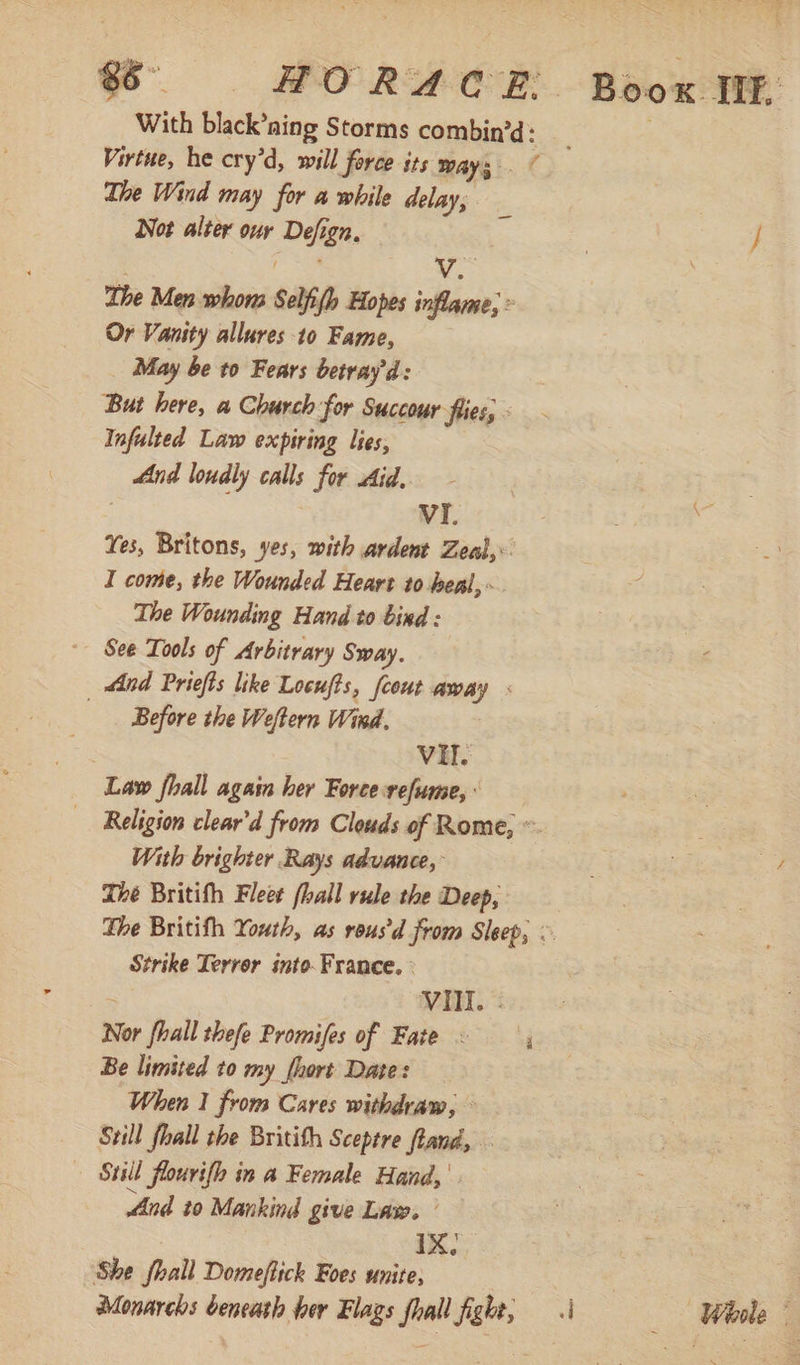 86 HORACE. Book III.
With black'ning Storms combin'd:
Virtue, he cry'd, will force its way;
The Wind may for a while delay,
Not alter our Deſign.
V.
The Men whom Selfiſh Hopes inflame,
Or Vanity allures to Fame,
May be to Fears betray'd:
But here, a Church for Succour flies,
Inſulted Law expiring lies,
And loudly calls for Aid.
VI.
Yes, Britons, yes, with ardent Zeal,
I come, the Wounded Heart to heal,
The Wounding Hand to bind:
See Tools of Arbitrary Sway.
And Prieſts like Locuſts, ſcout away
Before the Weſtern Wind.
VII.
Law ſhall again her Force reſume,
Religion clear'd from Clouds of Rome,
With brighter Rays advance,
The Britiſh Fleet ſhall rule the Deep,
The Britiſh Youth, as rous'd from Sleep,
Strike Terror into France.
VIII.
Nor ſhall theſe Promiſes of Fate
Be limited to my ſhort Date:
When I from Cares withdraw,
Still ſhall the Britiſh Sceptre ſtand,
Still flouriſh in a Female Hand,
And to Mankind give Law.
IX.
She ſhall Domeſtick Foes unite,
Monarchs beneath her Flags ſhall fight,
Whole